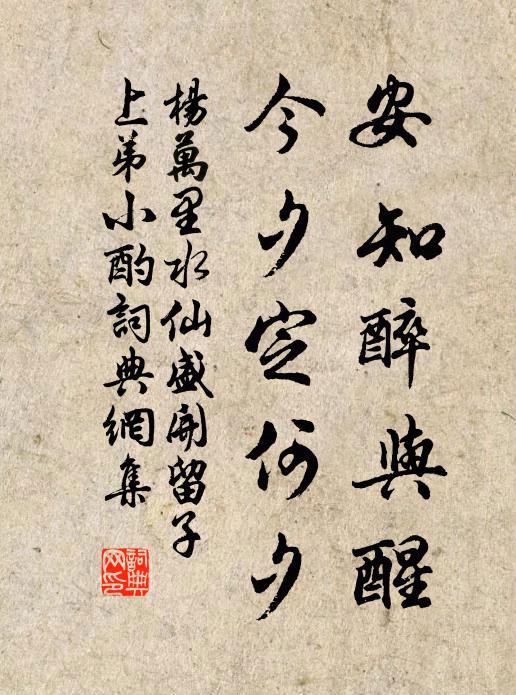 安知醉與醒
今夕定何夕
楊萬里水仙盛開留子
上弟小酌詞典網集
詞典網印